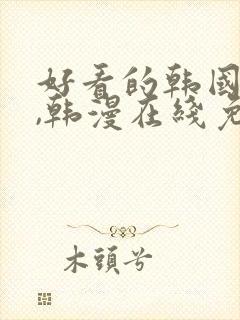 好看的韩国
,韩漫在线免
木頭兮